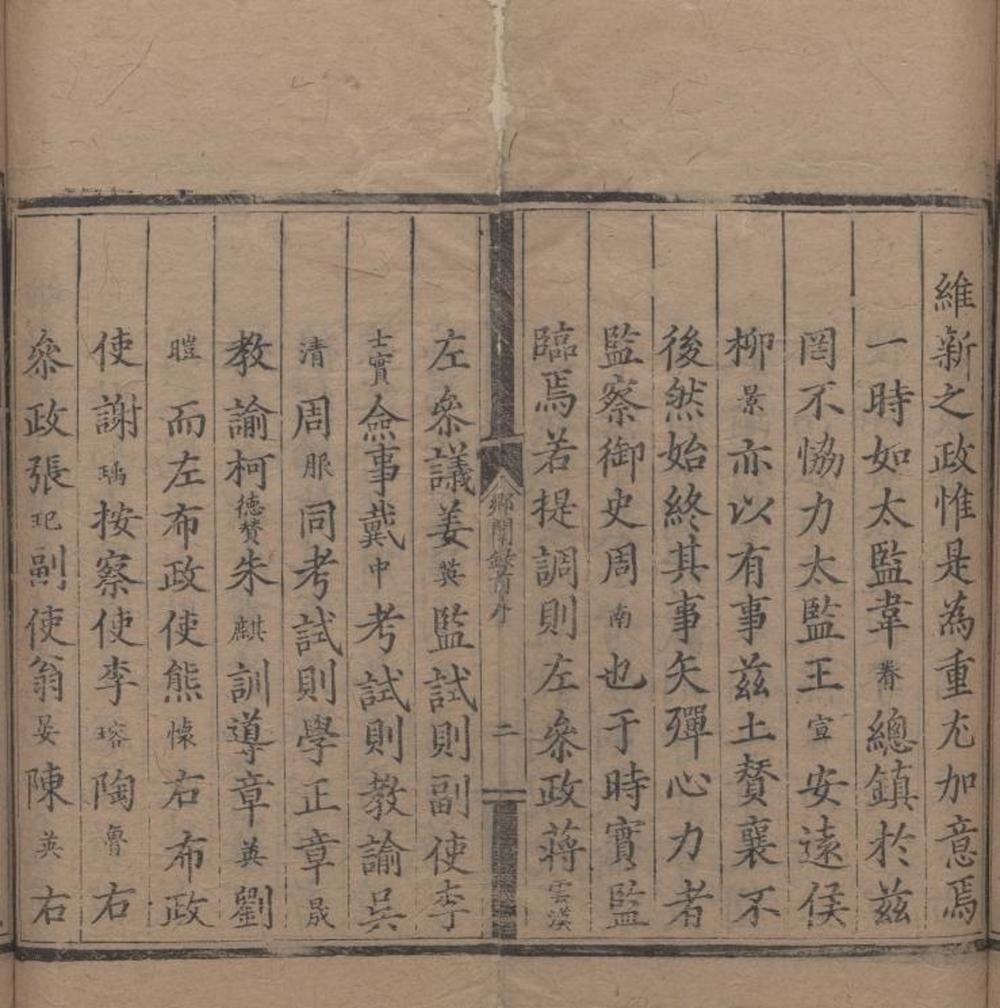 維新之政惟是為重尤加意焉
一時如太監韋眷總鎮於茲
罔不恊力太監王宣安遠侯
柳景亦以有事茲土賛襄不
後然始終其事矢殫心力者
監察御史周南也于時實監
臨焉若提調則左叅政蔣雲漢
鄉闈錄前序
二
左叅議姜英監試則副使李
士實僉事戴中考試則教諭吳
清周服同考試則學正章晟
教諭柯德賛朱麒訓導章英劉
暟而左布政使熊懷右布政
使謝瑀按察使李瑢陶魯右
叅政張玘副使翁晏陳英右